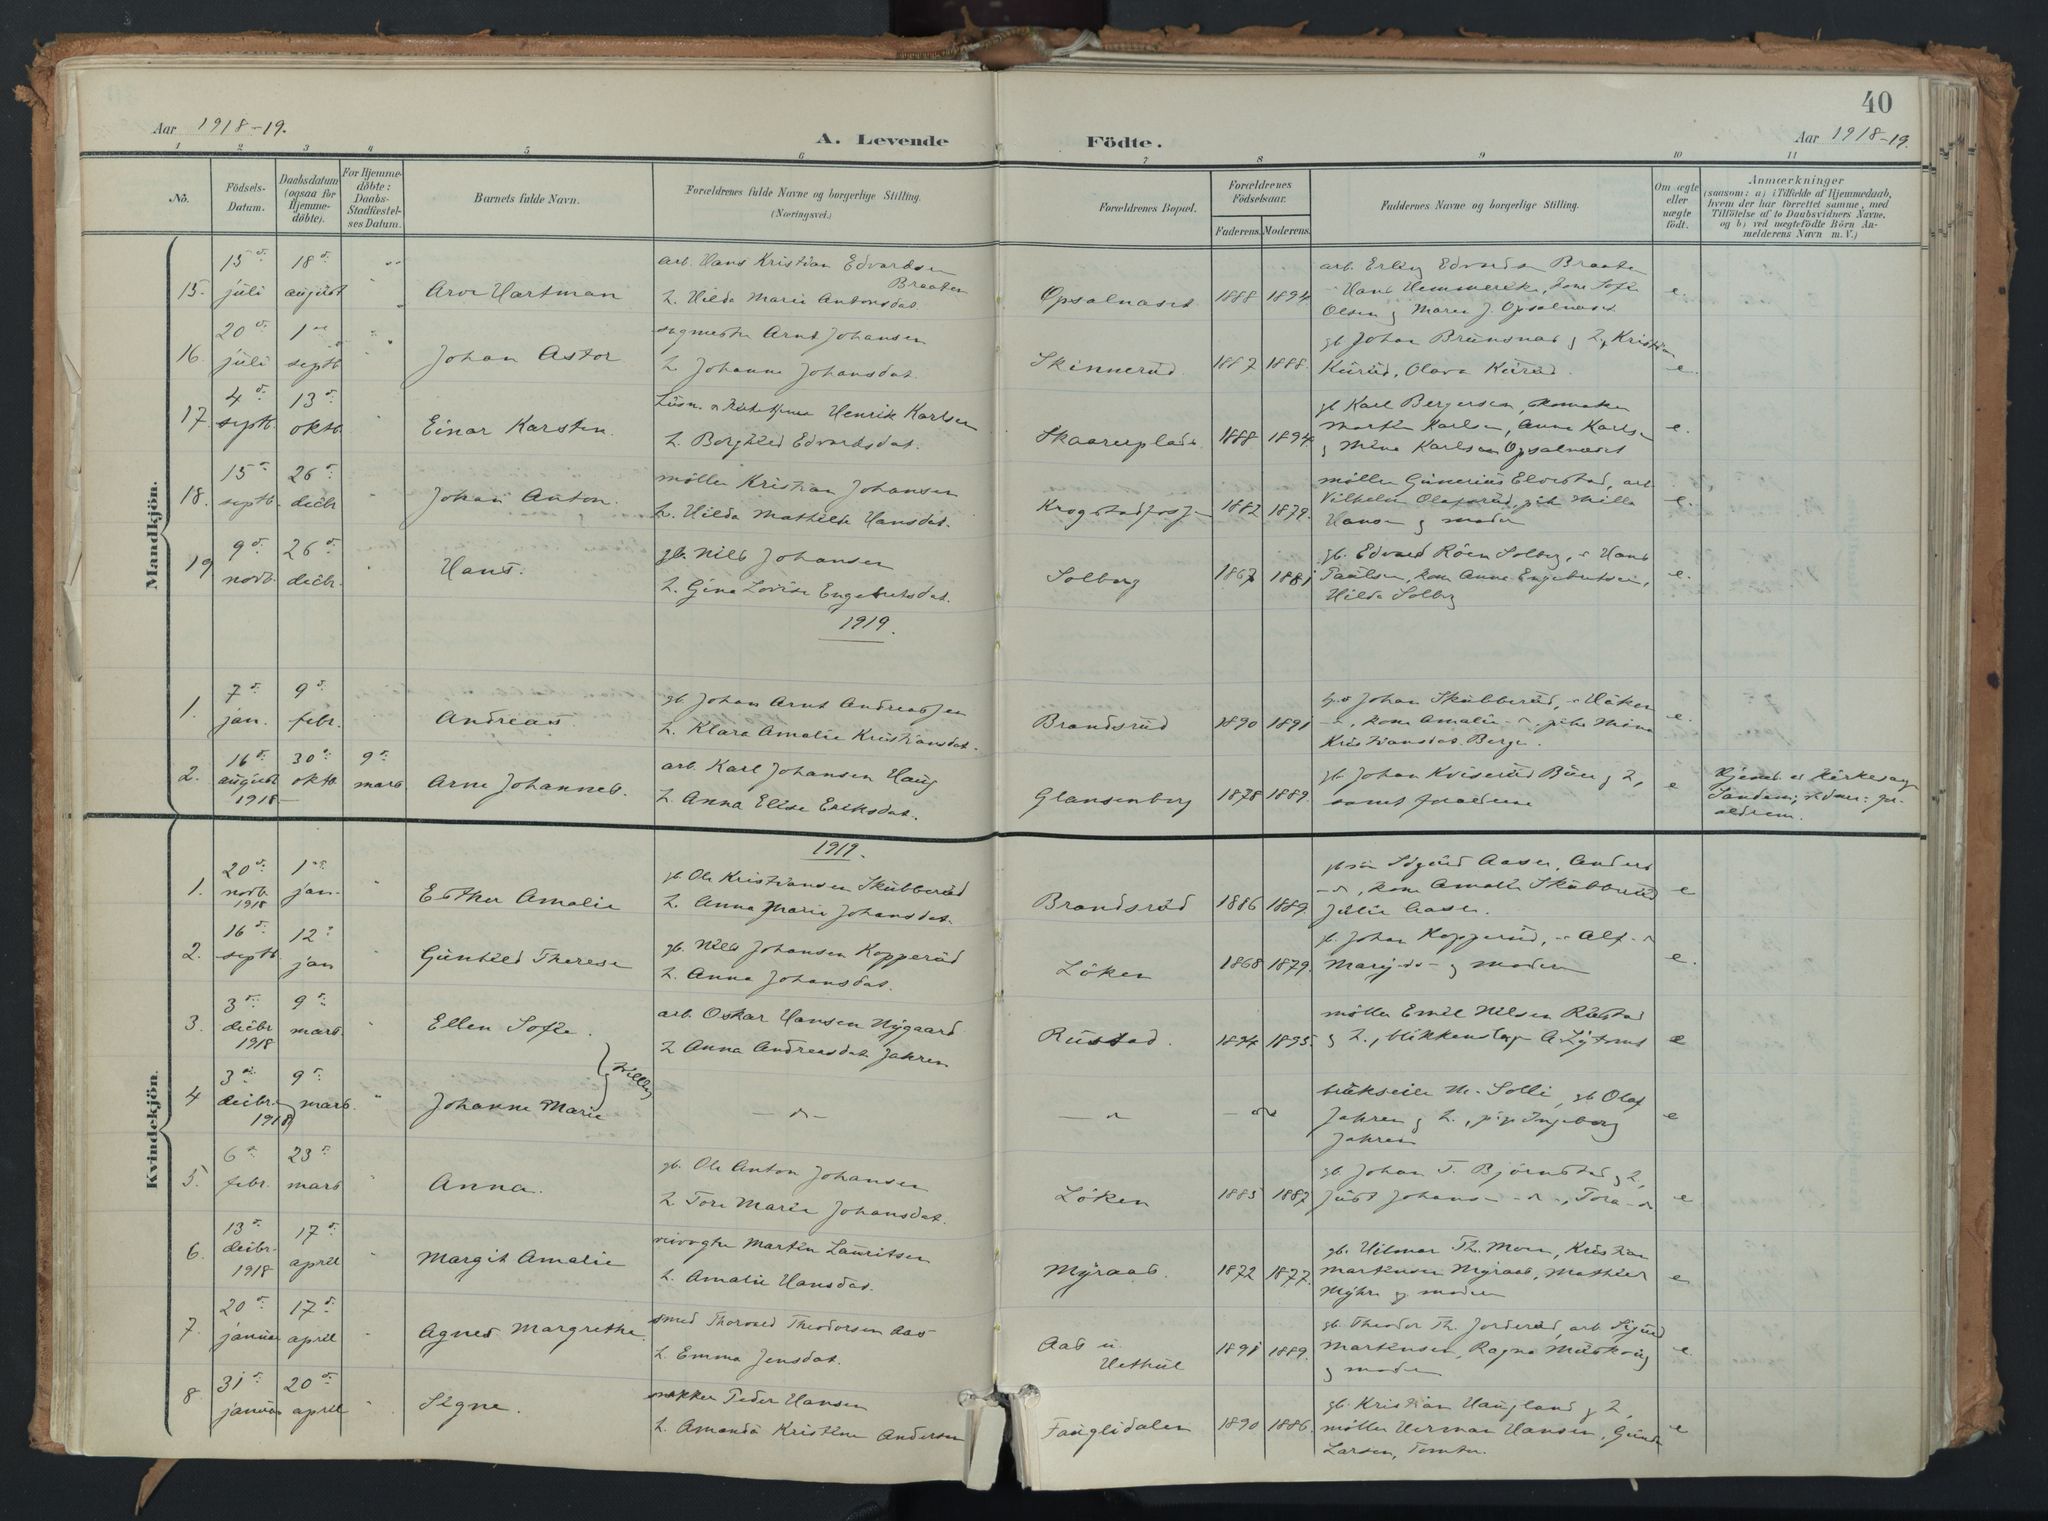 40
Aar 1918-19.
A. Levende Födte.
Aar 1918-19.
1 2 3 4 5 6 7 8 9 10 11
No.
Födsels-Datum.
Daabsdatum (ogsaa for Hjemme-döbte).
For Hjemme-döbte: Daabs-Stadfæstel-ses Datum.
Barnets fulde Navn.
Forældrenes fulde Navne og borgerlige Stilling.
(Næringsvei.)
Forældrenes Bopæl.
Forældrenes Födselsaar.
Faderens. Moderens.
Faddernes Navne og borgerlige Stilling.
Om ægte eller uægte födt.
Anmærkninger
(saasom: a) i Tilfælde af Hjemmedaab,
hvem der har forrettet samme, med
Tilföielse af to Daabsvidners Navne,
og b) ved uægtefödte Börn An-
melderens Navn m. V.)
Mandkjön.
15. 15 juli 18 august Arve Hartman
arb. Hans Kristian Edvardsen Braaten
h. Hilda Marie Antonsdat.
Opsalnæset 1888 1894
arb. Erling Edvardsen Braaten
Olsen og Maren J. Opsalnæset
e.
16. 20 juli 1 septb. Johan Astor
sagmester Arnt Johansen
h. Johanne Johansdat.
Skinnerud. 1887 1888.
gb Johan Brunsnæs og h, Kristian
Kürüd, Olava Kürüd.
e.
17. 4 septb. 13 oktb. Einar Karsten.
Henrik Karlsen
h. Borghild Edvardsdat.
Skaarerplads 1888 1894
gb Karl Bergersen,
Martin Karlsen, Anne Karlsen
og Mina Karlsen Opsalnæset
e.
18. 15 septb. 26 decbr Johan Anton.
möller Kristian Johansen
h. Hilda Mathilde Hansdat.
Krogstadfossen 1882 1879.
möller Gunerius Elvestad, arb.
Vilhelm Olafsrud, pike Milla
Hansen og moder
e.
19 9 novb. 26 decbr. Hans.
gb. Nils Johansen
h. Gina Lovise Engebretsdat.
Solberg 1867 1881
gb. Edvard Röen Solberg, Hans
Paulsen, kone Anne Engebretsen,
Hilda Solberg
e.
1919.
1. 7 jan. 9 febr. Andreas.
gb Johan Arnt Andreassen
h. Klara Amalie Kristiansdat.
Brandsrud 1890 1891
Johan Skubberud, Haken
kone Amalie pike Mina
Kristiansdat. Berge.
e.
2. 16 august 1918 30 oktb. 9 mars Arne Johannes.
arb. Karl Johansen Haug
h. Anna Elise Eriksdat.
Glansenberg 1878 1889.
gb. Johan Kviserud Büer og h,
samt forældrene
e
Hjemd. af Kirkesanger
Sandem; vidner: for-
ældrene.
Kvindekjön.
1919.
1. 20 novb. 1918 1 jan. Esther Amalie
gb Ole Kristiansen Skubberud
h. Anna Marie Johansdat.
Brandsrud 1886 1889.
Sigurd Aaser, Anders
kone Amalie Skubberud
Julie Aaser.
e
2. 16 septb. 12 jan Gunhild Therese
gb. Nils Johansen Kopperud
h. Anna Johansdat.
Löken 1868 1879.
gb. Johan Kopperud, Alf
Mary og moderen
e.
3. 3 decbr 1918 9 mars Ellen Sofie.
arb. Oskar Hansen Nygaard
h Anna Andreasdat. Jahren
Rustad. 1894 1895.
möller Emil Nilsen Rustad
og h., blikkenslager
e
Tvilling
4 3 decbr. 1918 9 mars. Johanne Marie
M. Solli, gb Olaf
Jahren og h., Ingeborg
Jahren
e
5. 6 febr. 23 mars Anna.
gb. Ole Anton Johansen
h Tore Marie Johansdat.
Löken 1885 1887
gb. Johan T. Björnstad og h,
Just Johans Tora
e
6. 13 decbr. 1918 17 april Margit Amalie
veivogter Martin Lauritsen
h. Amalie Hansdat.
Myraas. 1872 1877.
gb. Hilmar Th. Moen, Kristian
Martinsen Myraas, Mathild
Myhre og moderen
e
7. 20 januar 17 april Agnes Margrethe.
smed Thorvald Theodorsen Aas
h. Emma Jensdat.
Aas u. Hethul 1891 1889.
gb. Theodor Th. Jorderud, arb. Sigurd
Martinsen, Ragna
og moder
e.
8. 31 januar 20 april Signe.
snekker Peder Hansen
h. Amanda Kristine Andersen
Fauglidalen 1890 1886.
gb. Kristian Haugland og h,
möller Herman Hansen,
Larsen, Tomter.
e